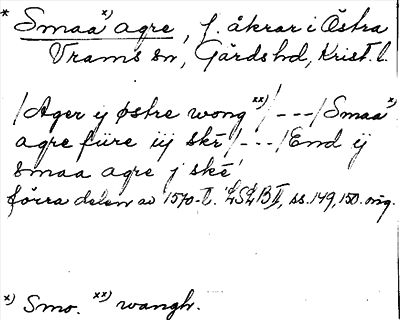 * Smaa x) agre, f. åkrar i Östra
Vrams sn, Gärds hd, Krist. l.
/Ager ij østre wong xx)/---/Smaa x)
agre fiire iij skē/---/End ij
smaa agre j skē
förra delen av 1570-t. LSLB II, ss. 149, 150. orig.
x) Smo. xx) wangh.